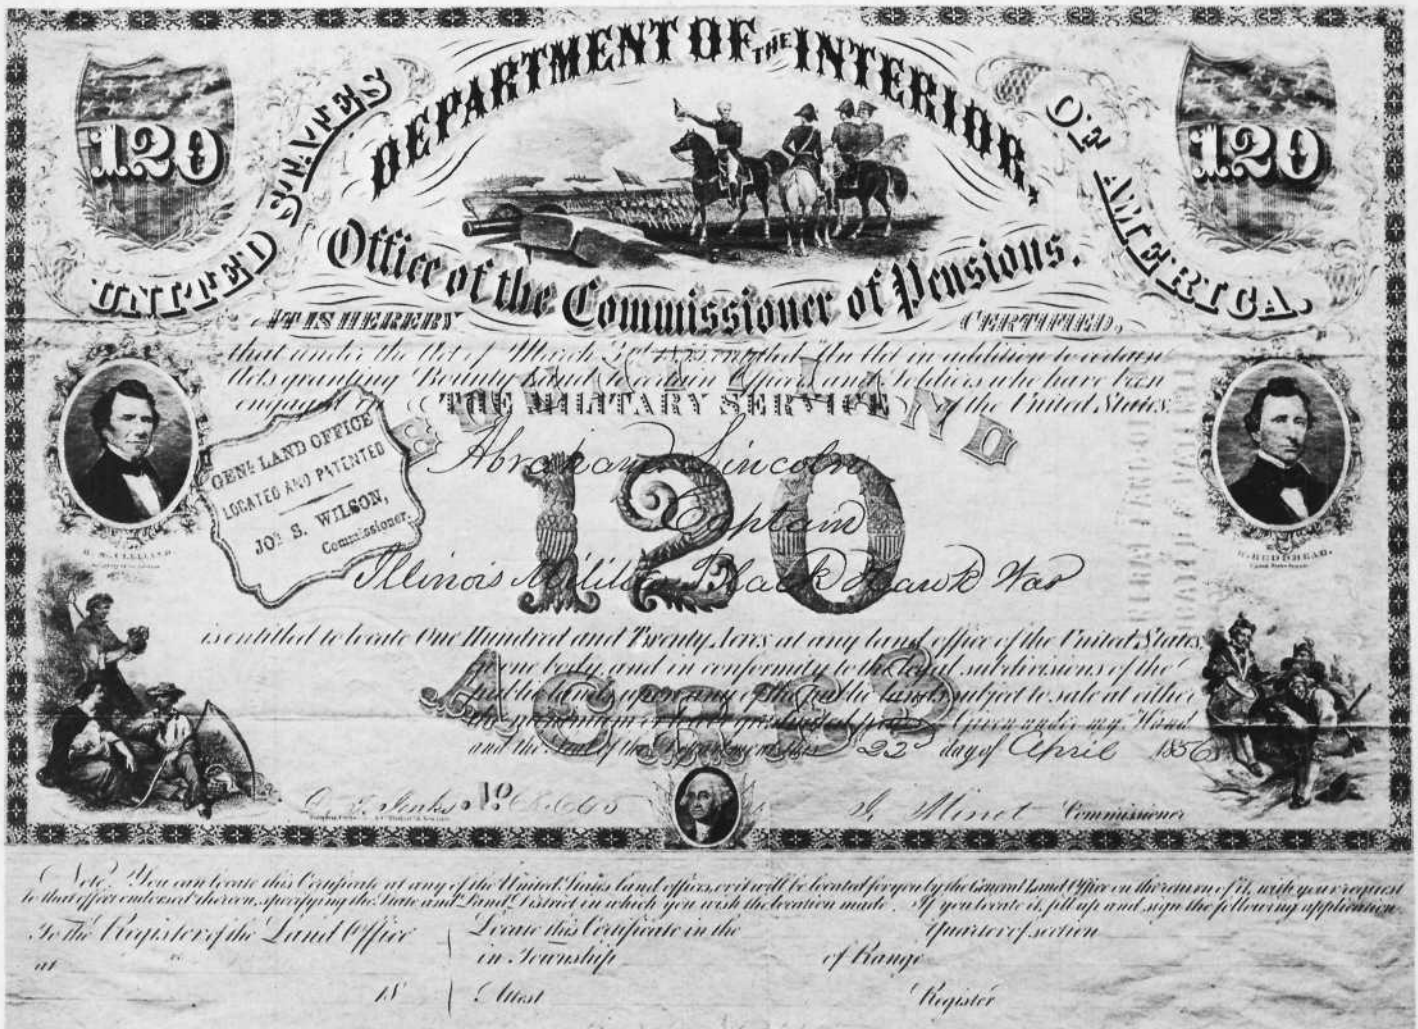 DEPARTMENT OF THE INTERIOR,
UNITED STATES
OF AMERICA.
120
120
Office of the Commissioner of Pensions.
IT IS HEREBY
CERTIFIED,
that under the Act of March 3rd 1855, entitled "An Act in addition to certain
Acts granting Bounty Land to certain Officers and Soldiers who have been
engaged in THE MILITARY SERVICE of the United States.
BOUNTY LAND
GENL. LAND OFFICE
LOCATED AND PATENTED
JOS. S. WILSON,
Commissioner.
Abraham Lincoln
120
Captain
Illinois Militia Black Hawk War
is entitled to locate One Hundred and Twenty Acres at any land office of the United States,
in one body, and in conformity to the legal subdivisions of the
public lands, upon any of the public lands subject to sale at either
the minimum or lower graduated prices. Given under my Hand
and the Seal of the Department this 22d day of April 1856
ACRES
No
J. Minot Commissioner
Note. You can locate this Certificate at any of the United States land offices, or it will be located for you by the General Land Office on the return of it, with your request
to that effect endorsed thereon, specifying the State and Land District in which you wish the location made. If you locate it, fill up and sign the following application
To the Register of the Land Office
Locate this Certificate in the
Quarter of section
at
in Township
of Range
18
Attest
Register